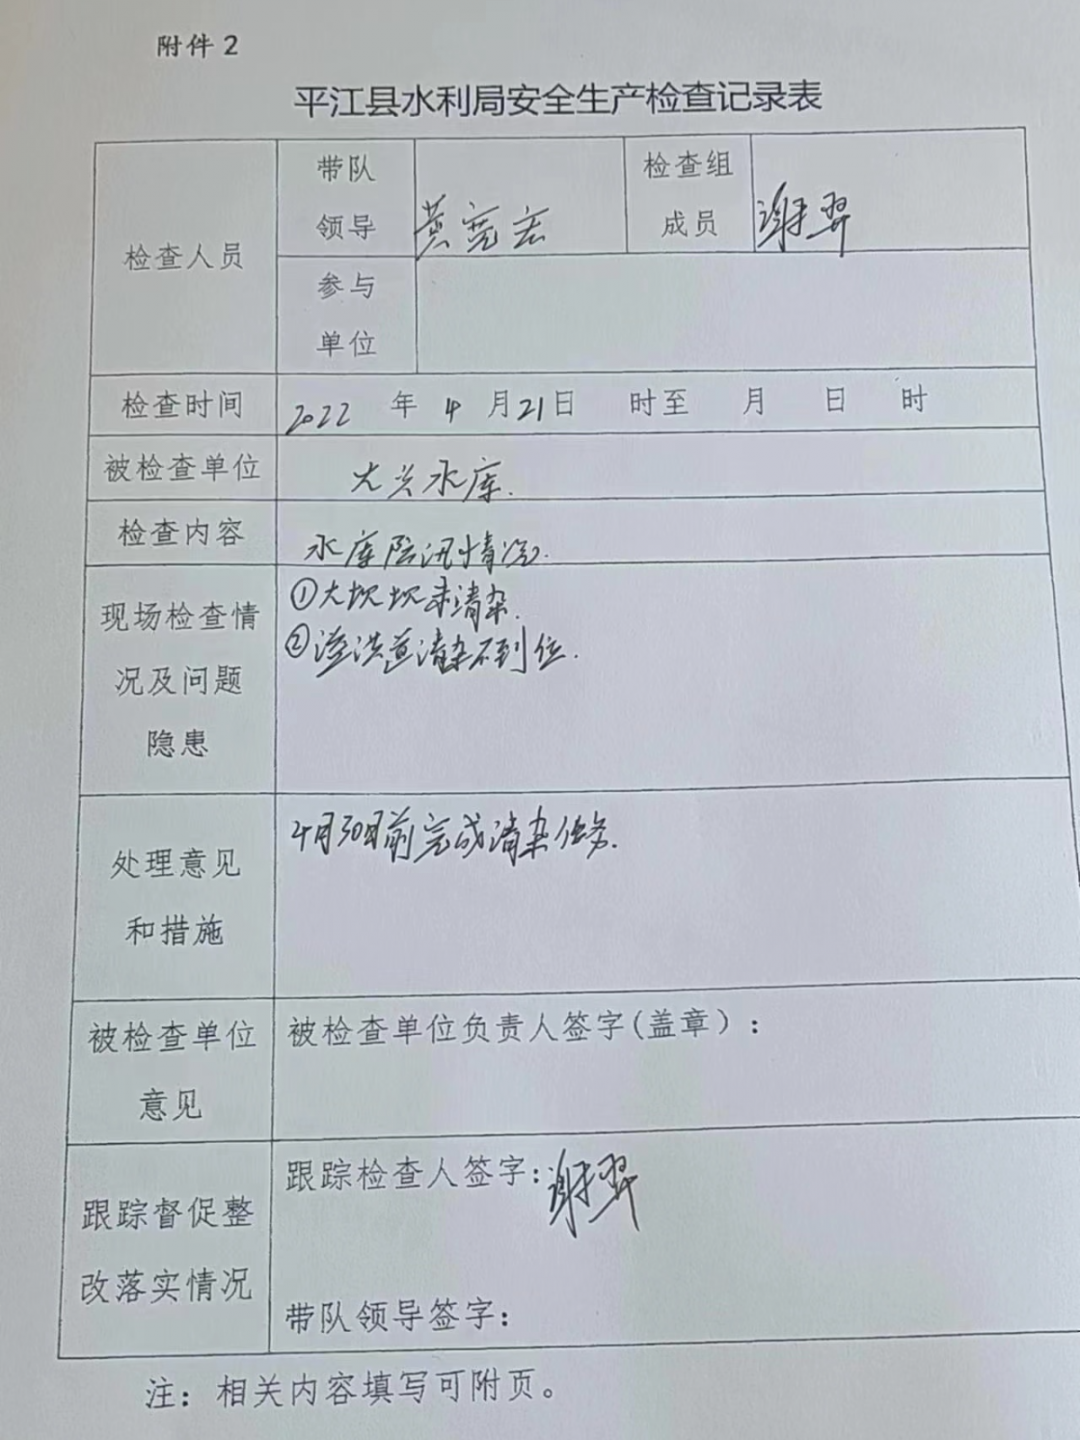 附件2
平江县水利局安全生产检查记录表
检查人员
带队
领导
黄宽宏
检查组
成员
谢羿
参与
单位
检查时间
2022年4月21日 时至 月 日 时
被检查单位
大兴水库.
检查内容
水库防汛情况.
现场检查情
况及问题
隐患
①大坝坝未清杂.
②溢洪道清杂不到位.
处理意见
和措施
4月30日前完成清杂任务.
被检查单位
意见
被检查单位负责人签字(盖章):
跟踪督促整
改落实情况
跟踪检查人签字:谢羿
带队领导签字:
注:相关内容填写可附页。